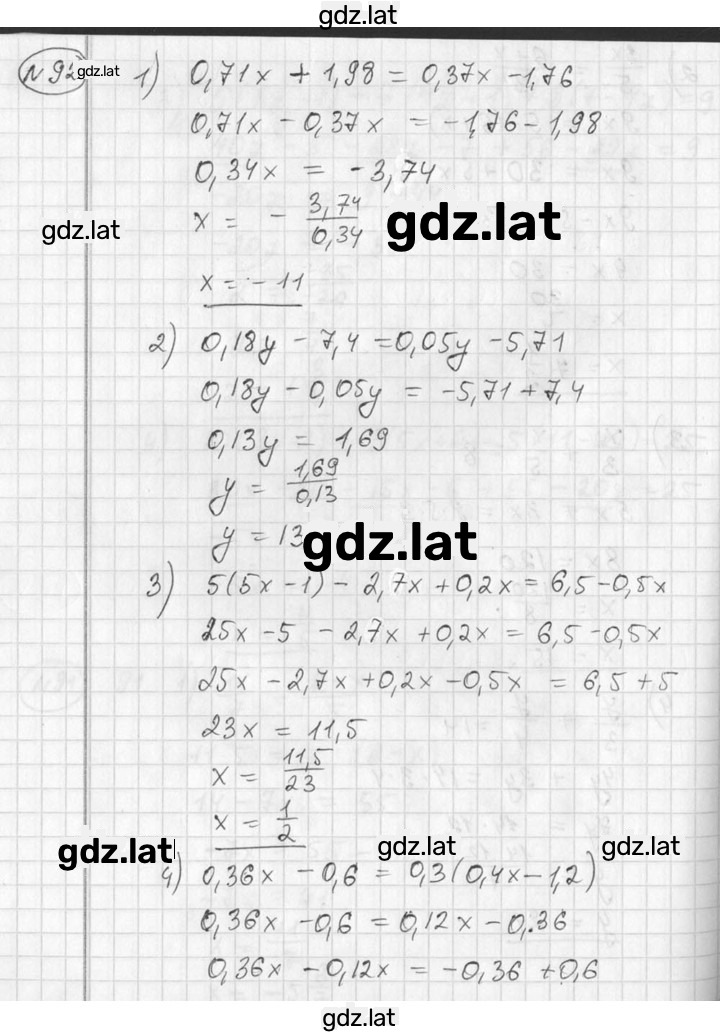 gdz.lat
N92 gdz.lat 1) 0,71x + 1,98 = 0,37x - 1,76
0,71x - 0,37x = -1,76 - 1,98
0,34x = -3,74
gdz.lat x = - 3,74/0,34 gdz.lat
x = - 11
2) 0,18y - 7,4 = 0,05y - 5,71
0,18y - 0,05y = -5,71 + 7,4
0,13y = 1,69
y = 1,69/0,13
y = 13 gdz.lat
3) 5(5x - 1) - 2,7x + 0,2x = 6,5 - 0,5x
25x - 5 - 2,7x + 0,2x = 6,5 - 0,5x
25x - 2,7x + 0,2x - 0,5x = 6,5 + 5
23x = 11,5
x = 11,5/23
x = 1/2
gdz.lat gdz.lat gdz.lat
4) 0,36x - 0,6 = 0,3(0,4x - 1,2)
0,36x - 0,6 = 0,12x - 0,36
0,36x - 0,12x = -0,36 + 0,6
gdz.lat